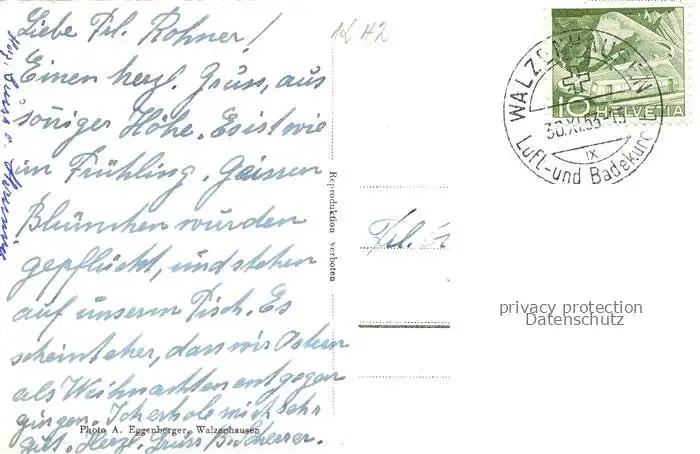 Liebe Frl. Rohner!
Einen herzl. Gruss, aus
sonniger Höhe. Es ist wie
im Frühling. Gestern
Blümchen wurden
gepflückt, und stehen
auf unserm Tisch. Es
scheint eher, dass wir Ostern
als Weihnachten entgegen
gingen. Ich erhole mich sehr
gut. Herzl. Gruss B. Scherrer.
Photo A. Eggenberger, Walzenhausen
Reproduktion verboten
KH2
WALZENHAUSEN
30.XI.53-15
IX
Luft- und Badekuro
10 HELVETIA
Frl.
privacy protection
Datenschutz